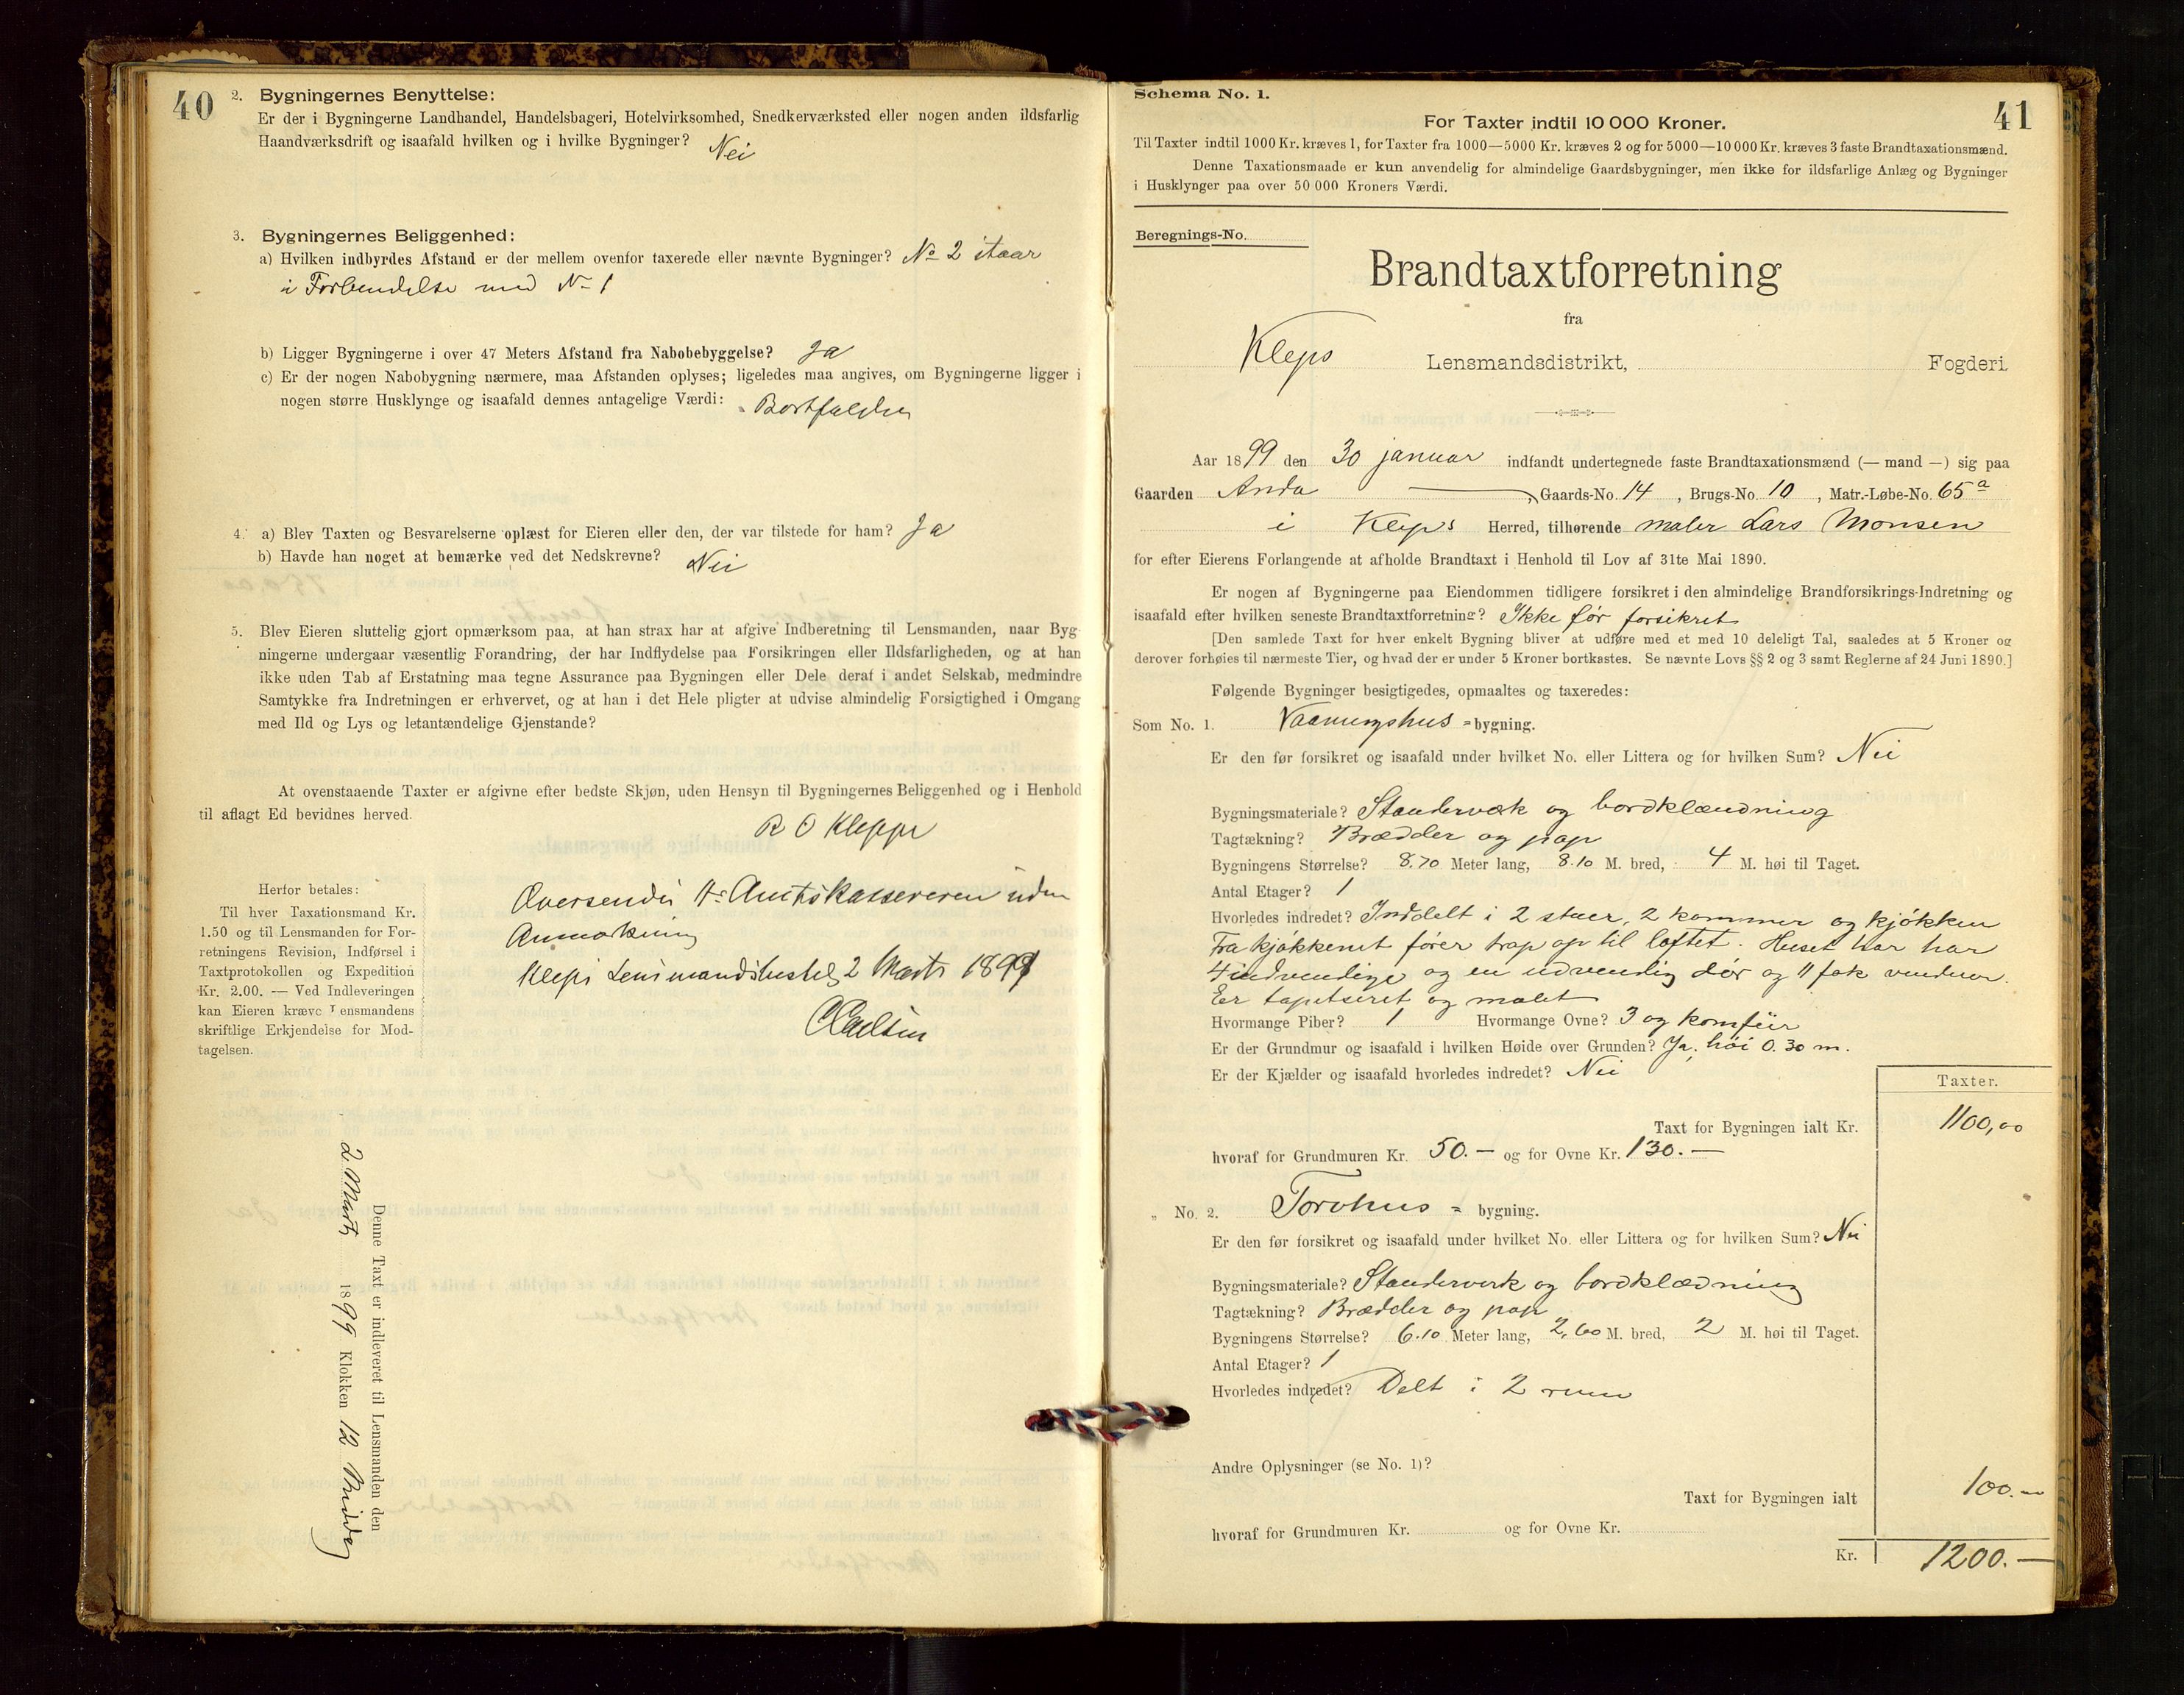 40
2. Bygningernes Benyttelse:
Er der i Bygningerne Landhandel, Handelsbageri, Hotelvirksomhed, Snedkerværksted eller nogen anden ildsfarlig
Haandværksdrift og isaafald hvilken og i hvilke Bygninger? Nei
3. Bygningernes Beliggenhed:
a) Hvilken indbyrdes Afstand er der mellem ovenfor taxerede eller nævnte Bygninger? No 2 staar
i Forbindelse med No 1
b) Ligger Bygningerne i over 47 Meters Afstand fra Nabobebyggelse? Ja
c) Er der nogen Nabobygning nærmere, maa Afstanden oplyses; ligeledes maa angives, om Bygningerne ligger i
nogen større Husklynge og isaafald dennes antagelige Værdi: Bortfalder
4. a) Blev Taxten og Besvarelserne oplæst for Eieren eller den, der var tilstede for ham? Ja
b) Havde han noget at bemærke ved det Nedskrevne? Nei
5. Blev Eieren sluttelig gjort opmærksom paa, at han strax har at afgive Indberetning til Lensmanden, naar Byg-
ningerne undergaar væsentlig Forandring, der har Indflydelse paa Forsikringen eller Ildsfarligheden, og at han
ikke uden Tab af Erstatning maa tegne Assurance paa Bygningen eller Dele deraf i andet Selskab, medmindre
Samtykke fra Indretningen er erhvervet, og at han i det Hele pligter at udvise almindelig Forsigtighed i Omgang
med Ild og Lys og letantændelige Gjenstande?
At ovenstaaende Taxter er afgivne efter bedste Skjøn, uden Hensyn til Bygningernes Beliggenhed og i Henhold
til aflagt Ed bevidnes herved.
R O Kleppe
Herfor betales:
Til hver Taxationsmand Kr.
1.50 og til Lensmanden for For-
retningens Revision, Indførsel i
Taxtprotokollen og Expedition
Kr. 2.00. — Ved Indleveringen
kan Eieren kræve Lensmandens
skriftlige Erkjendelse for Mod-
tagelsen.
Oversendes Hr Amtskassereren uden
Anmærkning
Kleps Lensmandsbestil 2 Marts 1899
Denne Taxt er indleveret til Lensmanden den
2 Marts 1899 Klokken 12 Middag
Schema No. 1.
41
For Taxter indtil 10 000 Kroner.
Til Taxter indtil 1000 Kr. kræves 1, for Taxter fra 1000—5000 Kr. kræves 2 og for 5000—10 000 Kr. kræves 3 faste Brandtaxationsmænd.
Denne Taxationsmaade er kun anvendelig for almindelige Gaardsbygninger, men ikke for ildsfarlige Anlæg og Bygninger
i Husklynger paa over 50 000 Kroners Værdi.
Beregnings-No.
Brandtaxtforretning
fra
Kleps Lensmandsdistrikt, Fogderi.
Aar 1899 den 30 januar indfandt undertegnede faste Brandtaxationsmænd (— mand —) sig paa
Gaarden Anda, Gaards-No. 14, Brugs-No. 10, Matr.-Løbe-No. 65a
i Kleps Herred, tilhørende maler Lars Monsen
for efter Eierens Forlangende at afholde Brandtaxt i Henhold til Lov af 31te Mai 1890.
Er nogen af Bygningerne paa Eiendommen tidligere forsikret i den almindelige Brandforsikrings-Indretning og
isaafald efter hvilken seneste Brandtaxtforretning? Ikke før forsikret
[Den samlede Taxt for hver enkelt Bygning bliver at udføre med et med 10 deleligt Tal, saaledes at 5 Kroner og
derover forhøies til nærmeste Tier, og hvad der er under 5 Kroner bortkastes. Se nævnte Lovs §§ 2 og 3 samt Reglerne af 24 Juni 1890.]
Følgende Bygninger besigtigedes, opmaaltes og taxeredes:
Som No. 1. Vaaningshus = bygning.
Er den før forsikret og isaafald under hvilket No. eller Littera og for hvilken Sum? Nei
Bygningsmateriale? Standervæk og bordklændning
Tagtækning? Brædder og pap
Bygningens Størrelse? 8.70 Meter lang, 8.10 M. bred, 4 M. høi til Taget.
Antal Etager? 1
Hvorledes indredet? Inddelt i 2 stuer, 2 kammer og kjøkken
Fra kjøkkenet fører trap op til loftet. Huset har har
4 indvendige og en udvendig dør og 11 fak vinduer.
Er tapetseret og malet
Hvormange Piber? 1 Hvormange Ovne? 3 og komfüir
Er der Grundmur og isaafald i hvilken Høide over Grunden? Ja, høi 0.30 m.
Er der Kjælder og isaafald hvorledes indredet? Nei
Taxter.
Taxt for Bygningen ialt Kr. 1100,00
hvoraf for Grundmuren Kr. 50.— og for Ovne Kr. 130.—
„ No. 2. Torvhus = bygning.
Er den før forsikret og isaafald under hvilket No. eller Littera og for hvilken Sum? Nei
Bygningsmateriale? Standerverk og bordklædning
Tagtækning? Brædder og pap
Bygningens Størrelse? 6.10 Meter lang, 2,60 M. bred, 2 M. høi til Taget.
Antal Etager? 1
Hvorledes indredet? Delt i 2 rum
Andre Oplysninger (se No. 1)?
Taxt for Bygningen ialt 100.—
hvoraf for Grundmuren Kr. og for Ovne Kr.
Kr. 1200.—